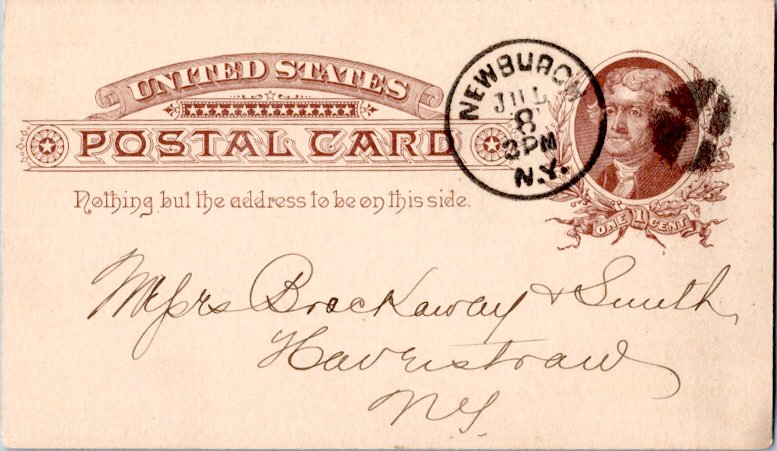 UNITED STATES
POSTAL CARD
Nothing but the address to be on this side.
NEWBURGH
JUL
8
2PM
N.Y.
ONE 1 CENT
Messrs Brockaway & Smith
Haverstraw
NY